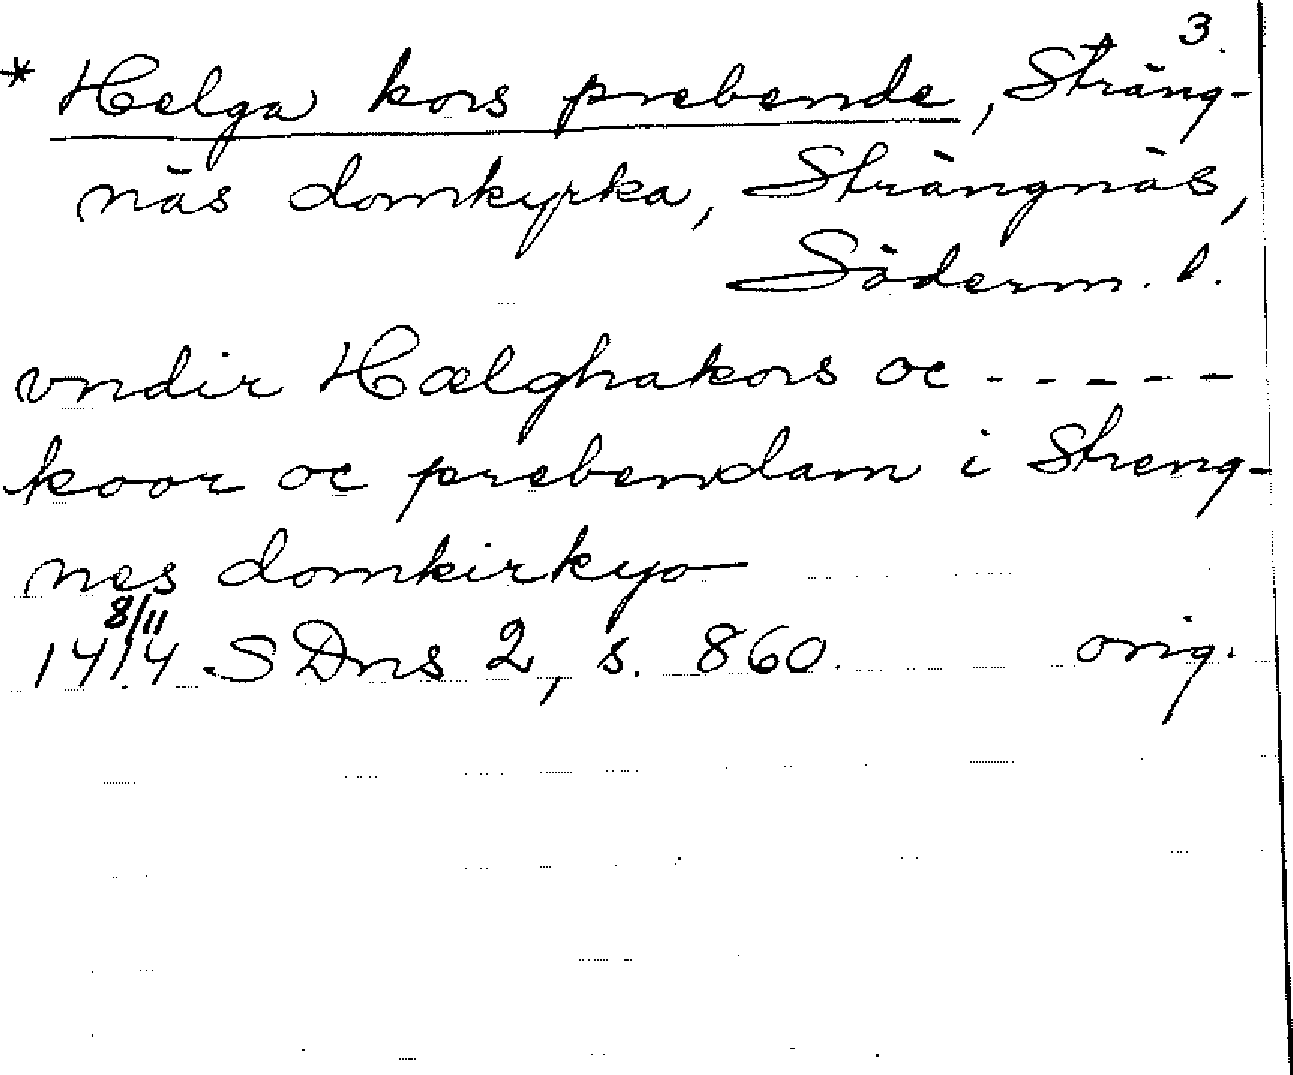 3.
* Helga kors prebende, Sträng-
näs domkyrka, Strängnäs,
Söderm. l.
vndir Hælghakors oc - - - - -
koor oc prebendam i Streng-
nes domkirkyo
8/11
1414 SDns 2, s. 860. orig.